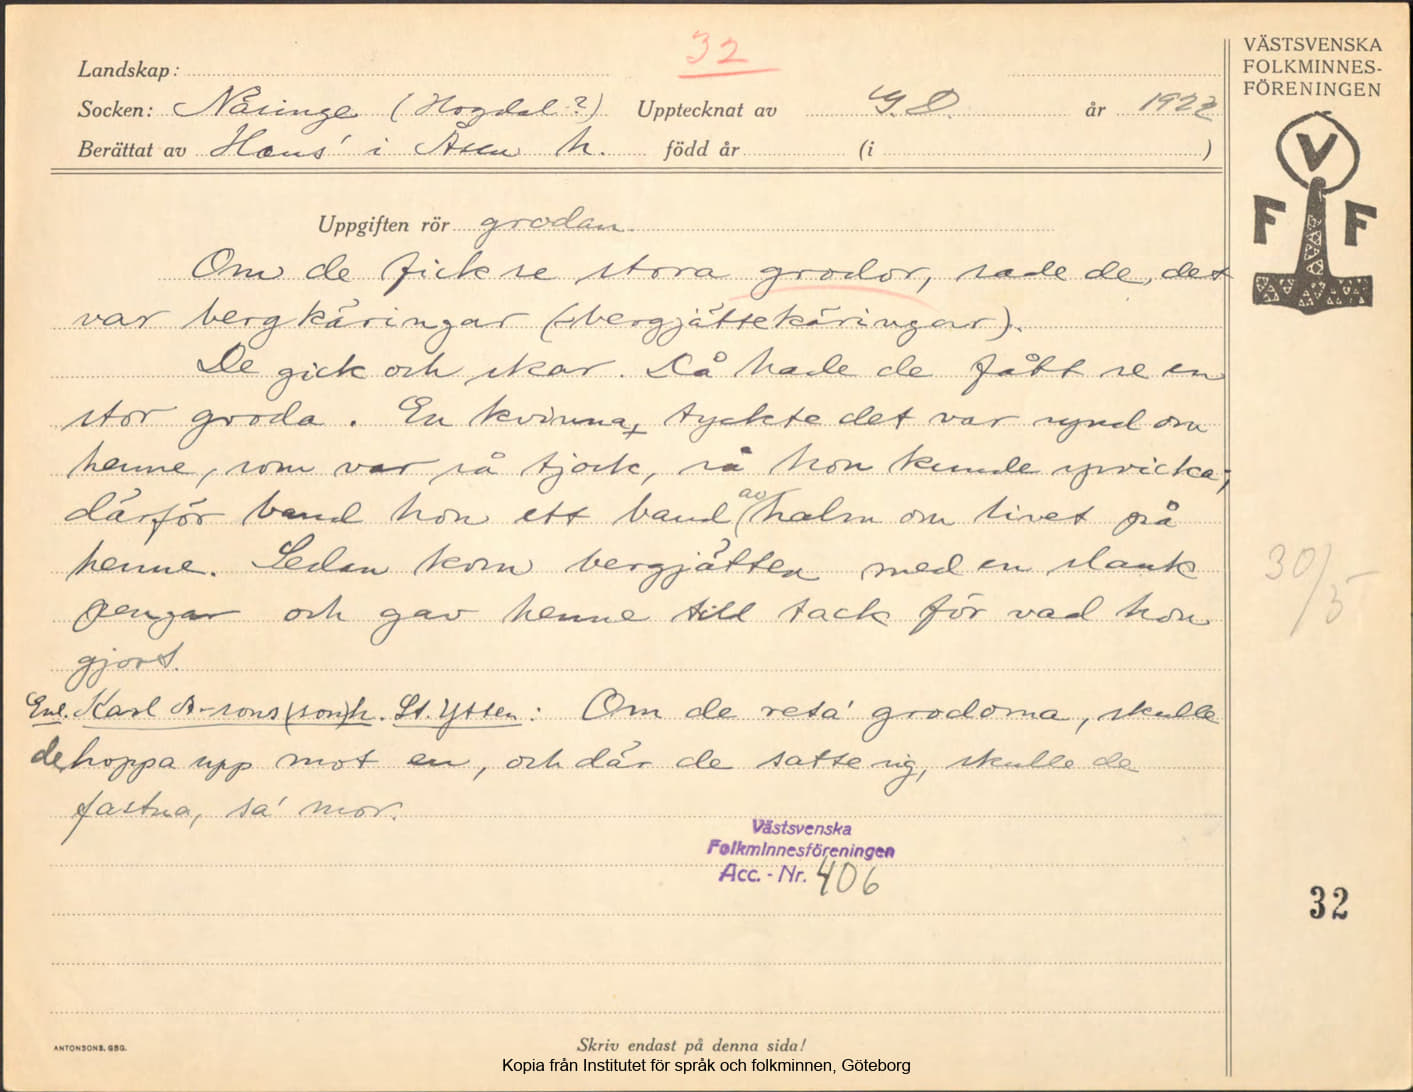 32
VÄSTSVENSKA
FOLKMINNES-
FÖRENINGEN
Landskap:
Socken: Näsinge (Hogdal?) Upptecknat av G. D. år 1922
Berättat av Hans' i Åsen h. född år (i )
V
F F
Uppgiften rör grodan.
Om de fick se stora grodor, sade de, det
var bergkäringar (bergjättekäringar).
De gick och skar. Då hade de fått se en
stor groda. En kvinna tyckte det var synd om
henne, som var så tjock, så hon kunde spricka;
därför band hon ett band av halm om livet på
henne. Sedan kom bergjätten med en slank
pengar och gav henne till tack för vad hon
gjort.
Enl. Karl A-sons (son)h. St. Ytten: Om de reta' grodorna, skulle
de hoppa upp mot en, och där de satte sig, skulle de
fastna, sa' mor.
30/5
Västsvenska
Folkminnesföreningen
Acc. - Nr. 406
32
ANTONSONS, GBG.
Skriv endast på denna sida!
Kopia från Institutet för språk och folkminnen, Göteborg